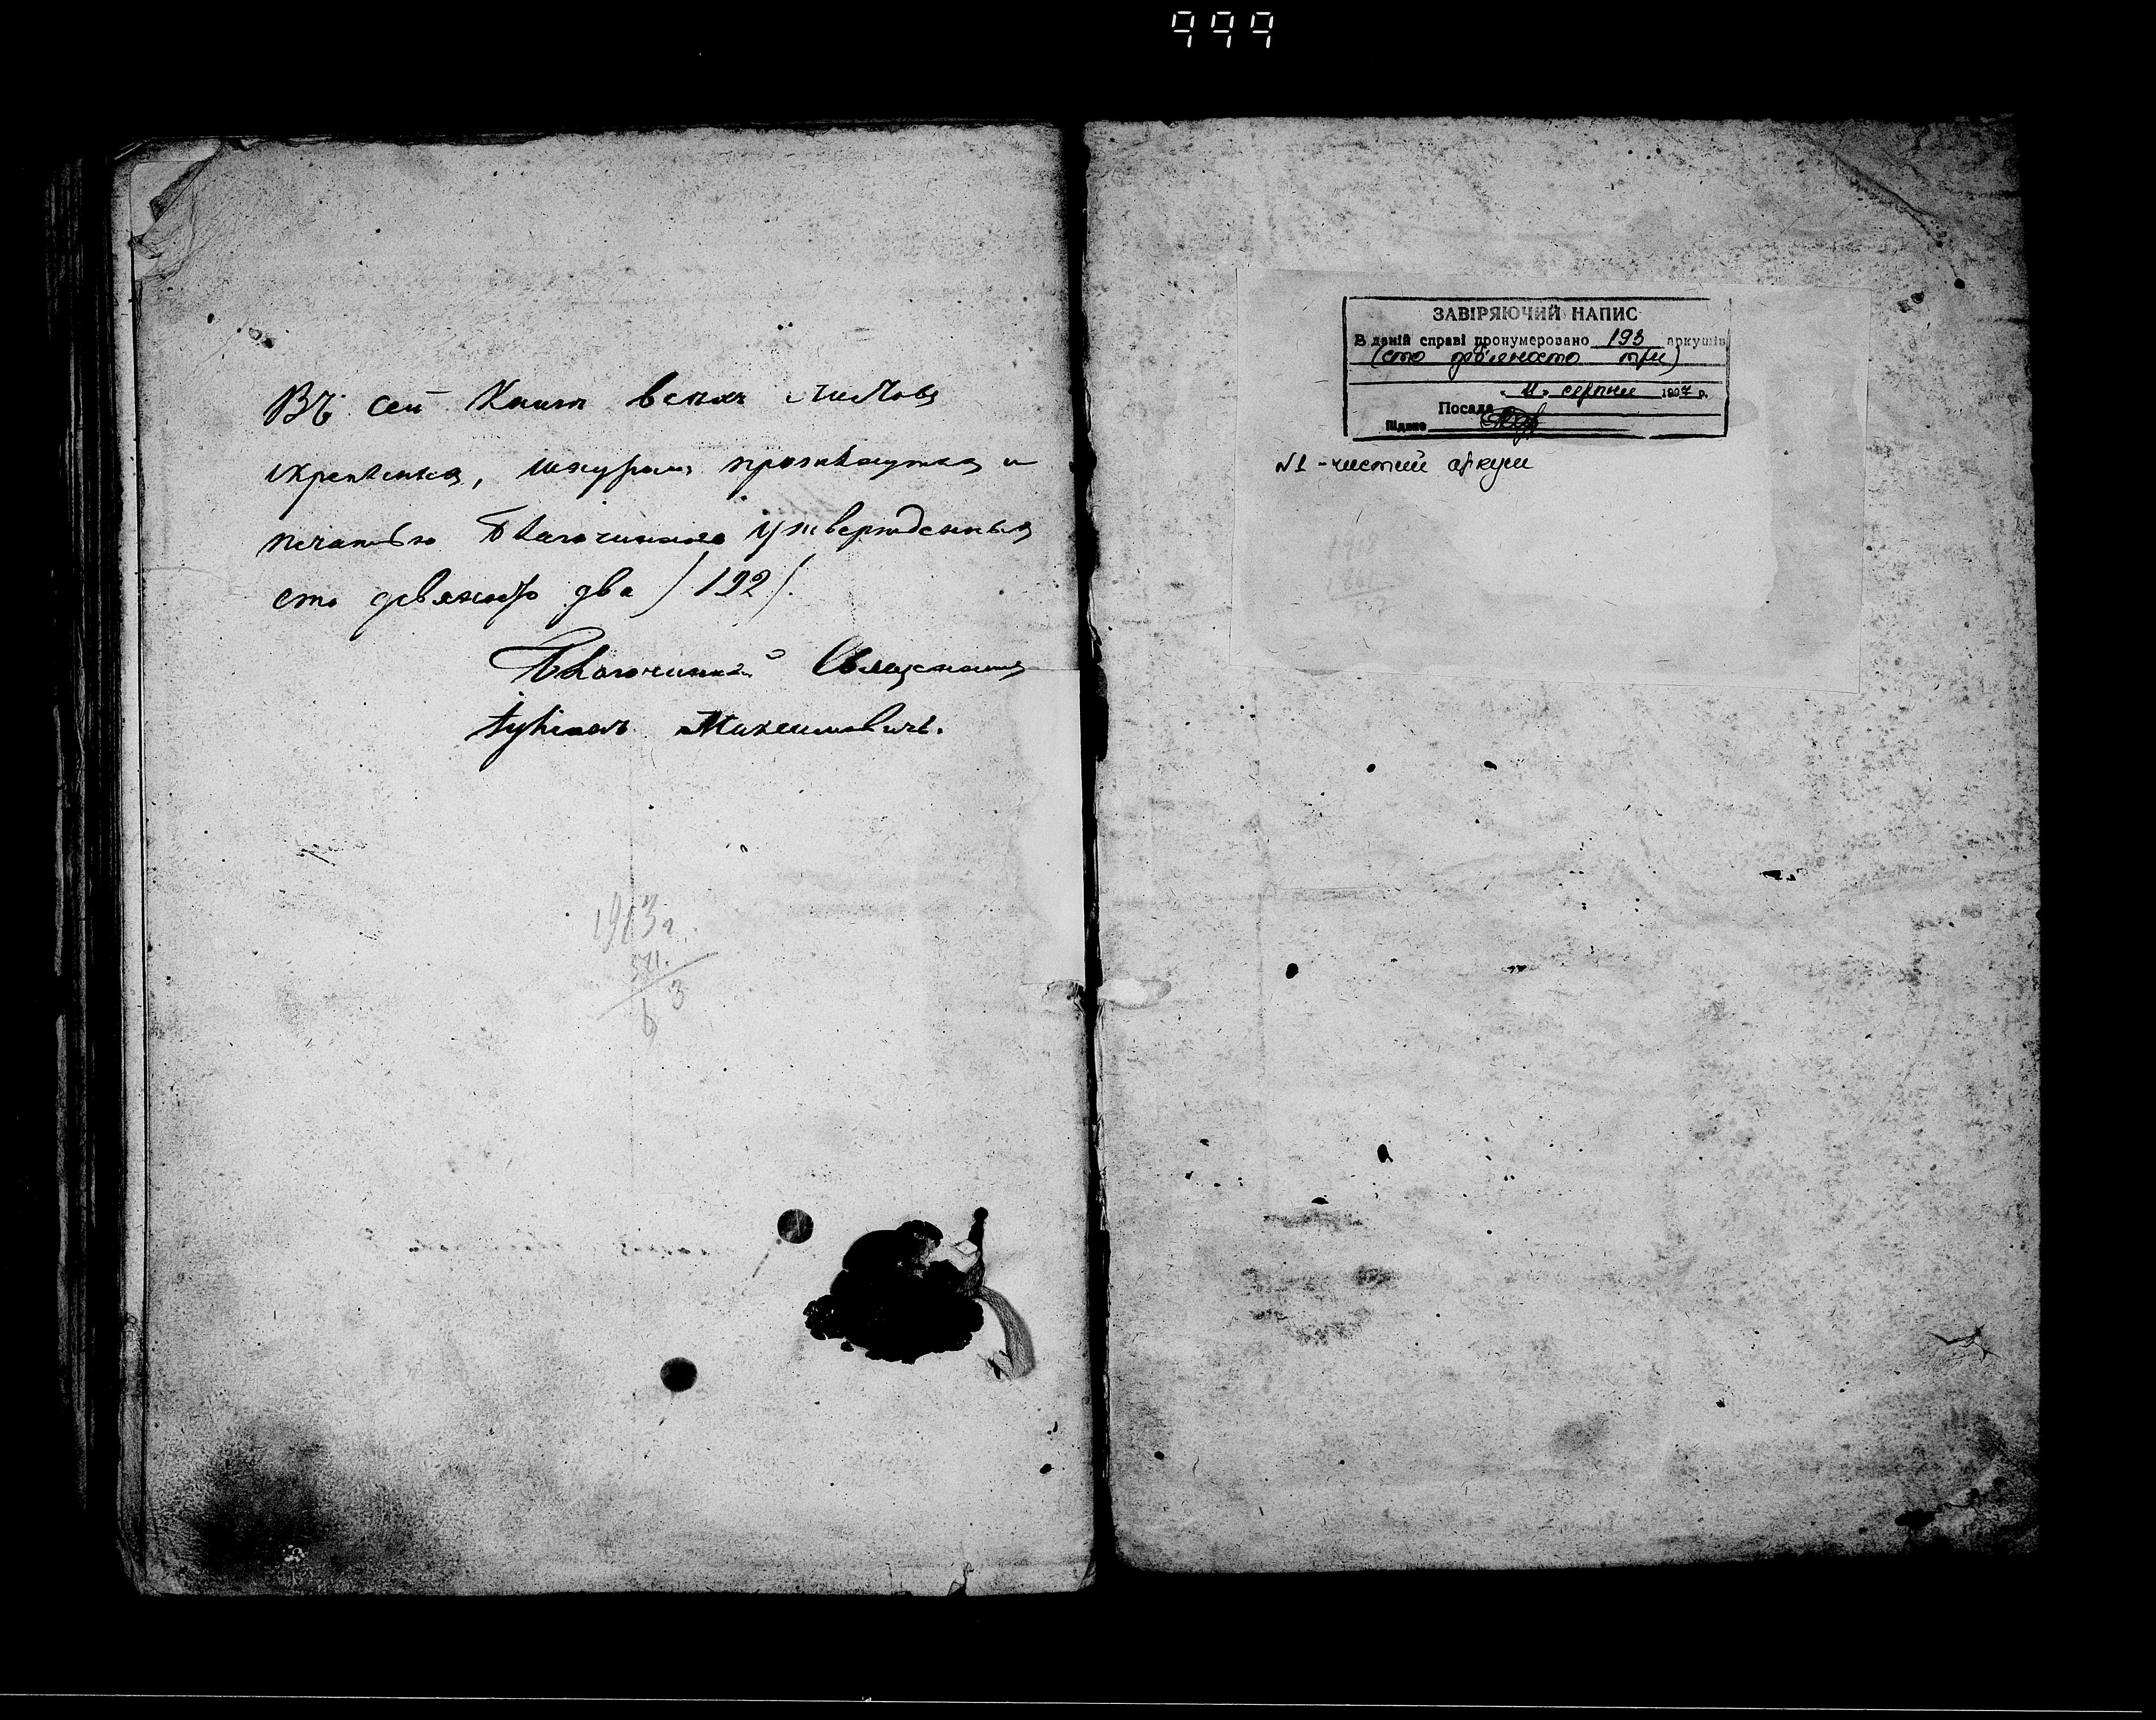 999
Въ сей Книгѣ всѣхъ листовъ
скрепленныхъ, шнуромъ прошнурованныхъ и
печатью Благочиннаго утвержденныхъ
сто девяносто два /192/.
Благочинный Священникъ
Максимовичъ.
1913 г
ЗАВІРЯЮЧИЙ НАПИС
В даній справі пронумеровано 193 аркушів
(сто дев'яносто три)
"11" серпня 1997 р.
Посада
Підпис
№1 - чистий аркуш